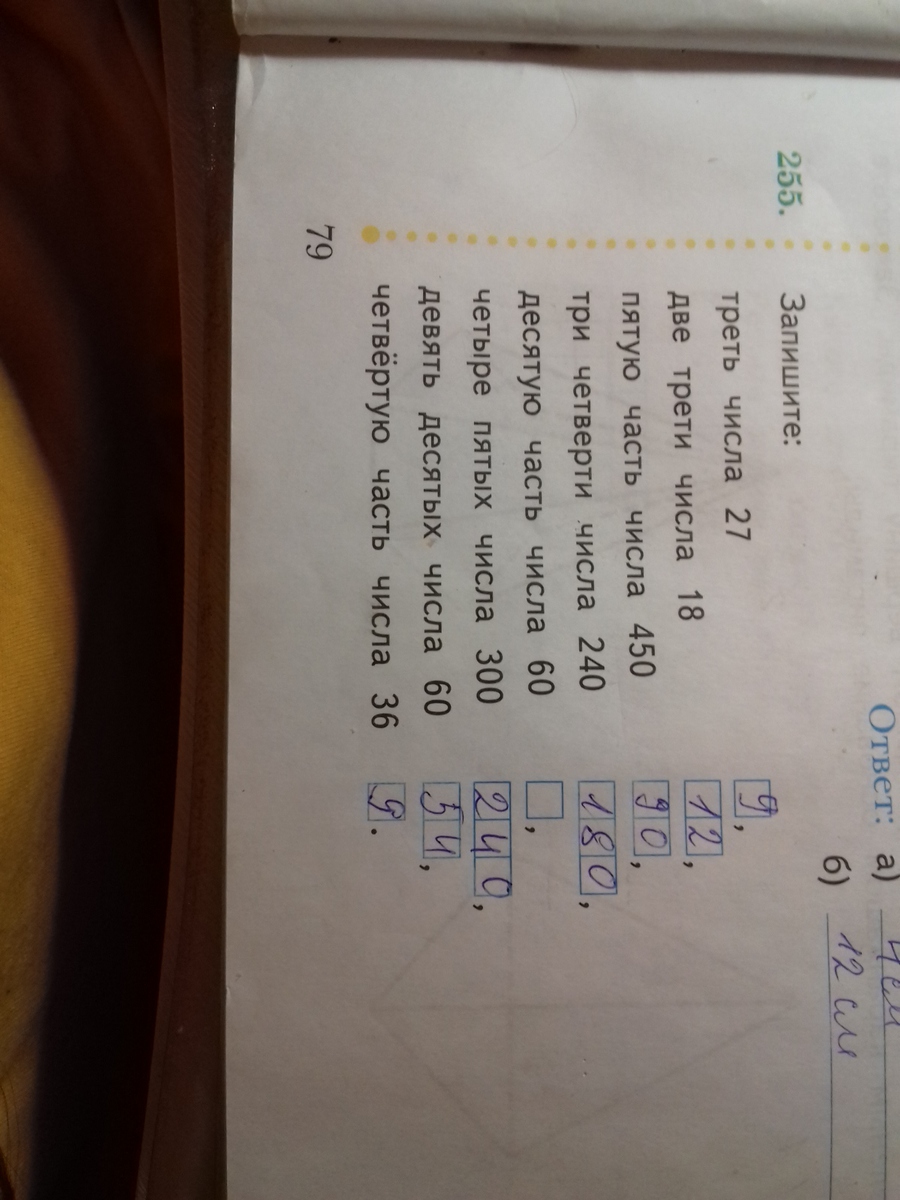 Ответ: а) 4 см
б) 12 см
255. Запишите:
треть числа 27 9,
две трети числа 18 12,
пятую часть числа 450 90,
три четверти числа 240 180,
десятую часть числа 60 ,
четыре пятых числа 300 240,
девять десятых числа 60 54,
четвёртую часть числа 36 9.
79